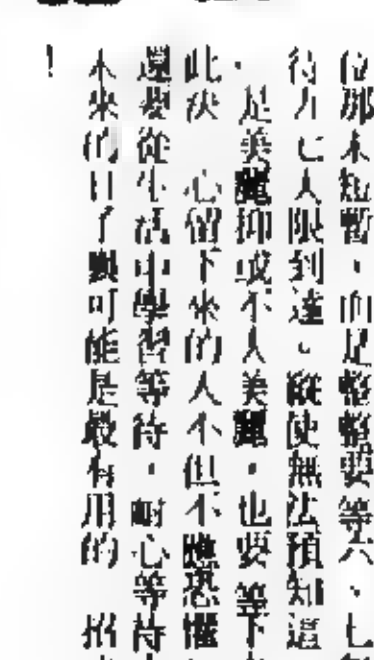 位那末短暫，而是整整要等六、七
待方七人限到達。縱使無法預知這
，是美麗抑或不大美麗，也要等下
此決 心留下來的人不但不應恐懼
還要從生活中學習等待，耐心等待
未來的日子裏可能是最有用的 招
！